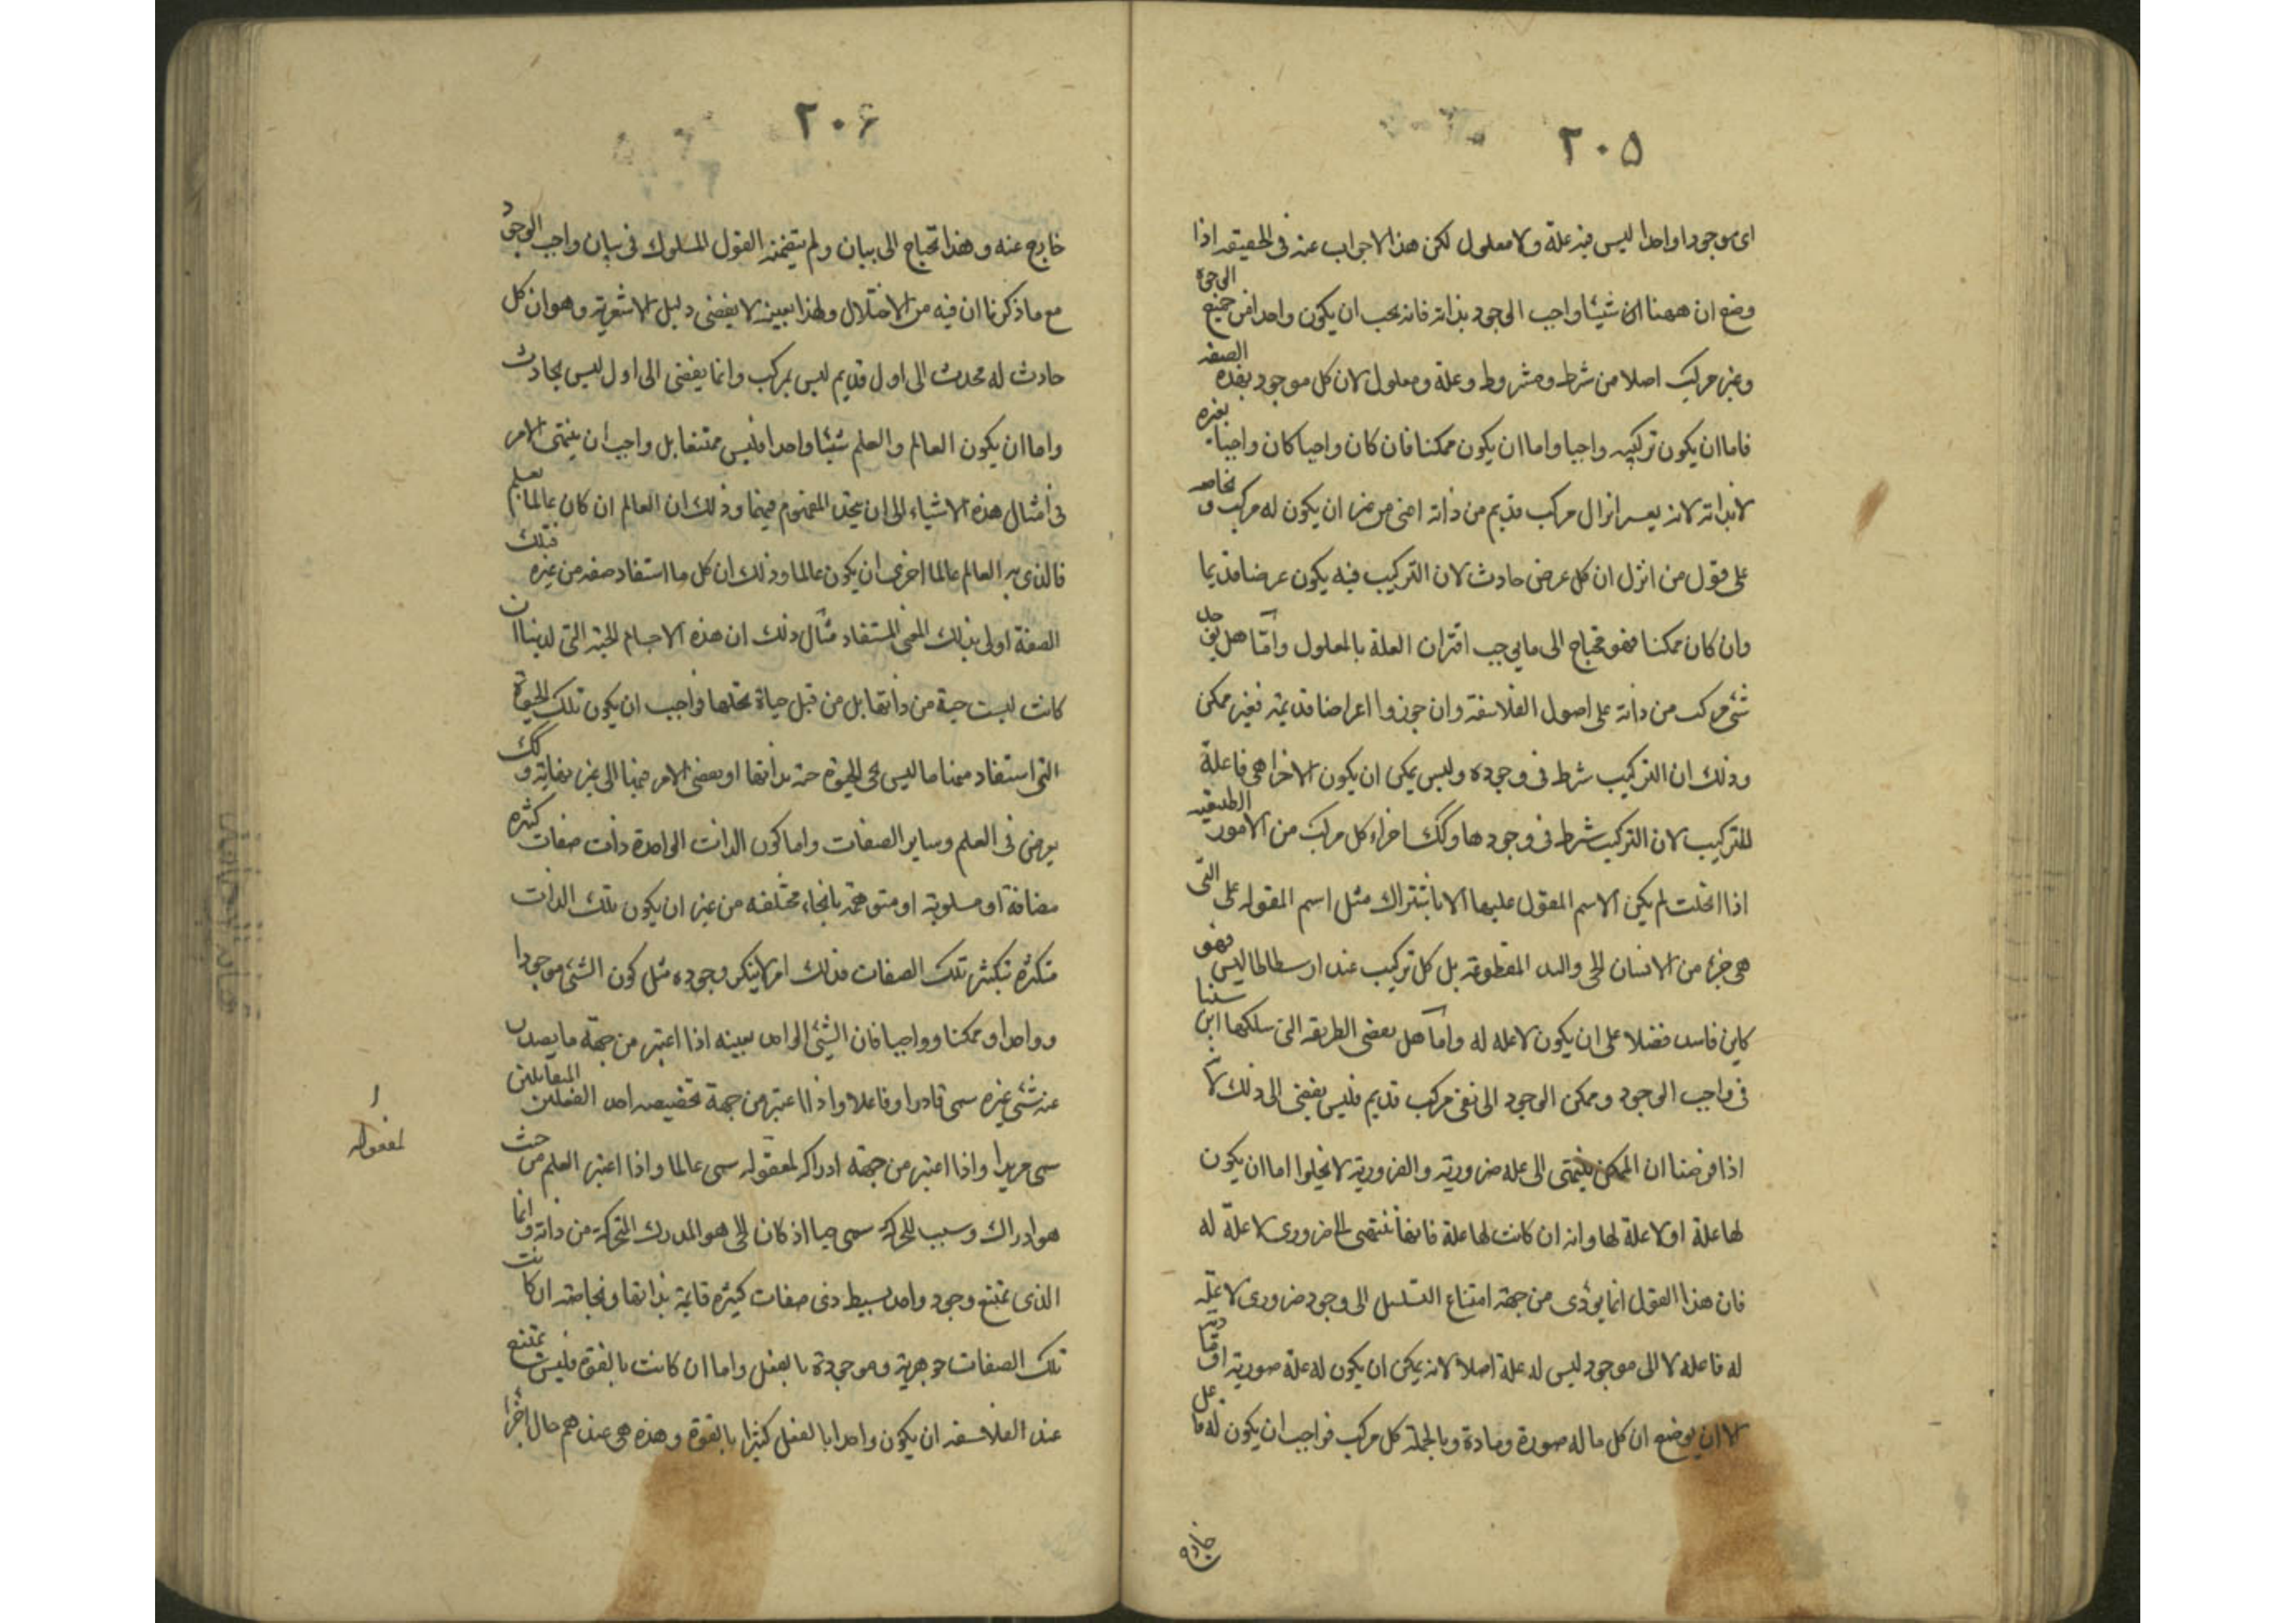 ٢٠٥
اى موجودا واحدا ليس فيه علة ولا معلول لكن هذا الاجواب عنه فى الحقيقه اذا
وضع ان ههنا شيئا واجب الوجود بذاته فانه يجب ان يكون واحدا من جميع الوجوه
وغير مركب اصلا من شرط ومشروط وعلة ومعلول لان كل موجود بهذه الصفه
فاما ان يكون تركيبه واجبا واما ان يكون ممكنا فان كان واجبا كان واجبا بغيره
لا بذاته لانه يعسر انزال مركب قديم من ذاته اعنى من غير ان يكون له مركب و بخاصه
على قول من انزل ان كل عرض حادث لان التركيب فيه يكون عرضا قديما
وان كان ممكنا فهو محتاج الى ما يوجب اقتران العلة بالمعلول وامّا هل يوجد
شئ مركب من ذاته على اصول الفلاسفة وان جوزوا اعراضا قديمة فغير ممكن
وذلك ان التركيب شرط فى وجوده وليس يمكن ان يكون الاجزا هى فاعلة
للتركيب لان التركيب شرط فى وجودها وكك اجزاء كل مركب من الامور الطبيعيه
اذا انحلت لم يكن الاسم المقول عليها الا باشتراك مثل اسم المقوله على التى
هى جزء من الانسان الحى واليد المقطوعة بل كل تركيب عند ارسطاطاليس فهو
كاين فاسد فضلا على ان يكون لا علة له وامّا هل يفضى الطريقه التى سلكها ابن سينا
فى واجب الوجود وممكن الوجود الى نفى مركب قديم فليس يفضى الى ذلك لانه
اذا فرضنا ان الممكن ينتهى الى علة ضرورية والضرورية لا يخلوا اما ان يكون
لها علة او لا علة لها وانه ان كانت لها علة فانها تنتهى الى ضرورى لا علة له
فان هذا القول انما يؤدى من جهة امتناع التسلسل الى وجود ضرورى لا علة
له فاعله لا الى موجود ليس له علة اصلا لانه يمكن ان يكون له علة صورية او مادية
الا ان يوضع ان كل ما له صورة ومادة وبالجملة كل مركب فواجب ان يكون له فاعل
خارج
٢٠۶
خارج عنه وهذا يحتاج الى بيان ولم يتضمنه القول المسلوك فى بيان واجب الوجود
مع ما ذكرنا ان فيه من الاختلال ولهذا بعينه لا يفضى دليل الاشعرية وهو ان كل
حادث له محدث الى اول قديم ليس بمركب وانما يفضى الى اول ليس بحادث
واما ان يكون العالم والعلم شيئا واحدا فليس ممتنعا بل واجب ان ينتهى الامر
فى امثال هذه الاشياء الى ان يتحد المفهوم فيهما وذلك ان العالم ان كان عالما بعلم
فالذى به العالم عالما احرى ان يكون عالما وذلك ان كل ما استفاد صفه من غيره فتلك
الصفة اولى بذلك المعنى المستفاد مثال ذلك ان هذه الاجسام الحية التى لدينا ان
كانت ليست حية من ذاتها بل من قبل حياة تحلها فواجب ان يكون تلك الحيوة
التى استفاد منها ما ليس بحى الحيوة حية بذاتها او يفضى الامر فيها الى غير نهاية وكك
يعرض فى العلم وساير الصفات واما كون الذات الواحدة ذات صفات كثيره
مضافة او مسلوبة او متوهمة بانحاء مختلفه من غير ان يكون تلك الذات
متكثرة بتكثر تلك الصفات فذلك امر لا ينكر وجوده مثل كون الشئ موجودا
وواحدا وممكنا وواجبا فان الشئ الواحد بعينه اذا اعتبر من جهة ما يصدر
عنه شئ غيره سمى قادرا وفاعلا واذا اعتبر من جهة تخصيصه احد الفعلين المتقابلين
سمى مريدا واذا اعتبر من جهة ادراكه لمعقوله سمى عالما واذا اعتبر العلم من حيث
هو ادراك وسبب للحركة سمى حيا اذ كان الحى هو المدرك المتحركة من ذاته وانما
الذى يمتنع وجود واحد بسيط ذى صفات كثيره قايمة بذاتها وبخاصه ان كانت
تلك الصفات جوهرية وموجودة بالفعل واما ان كانت بالقوة فليس يمتنع
عند الفلاسفه ان يكون واحدا بالفعل كثيرا بالقوة وهذه هى عندهم حال اجزا
لمفعوله